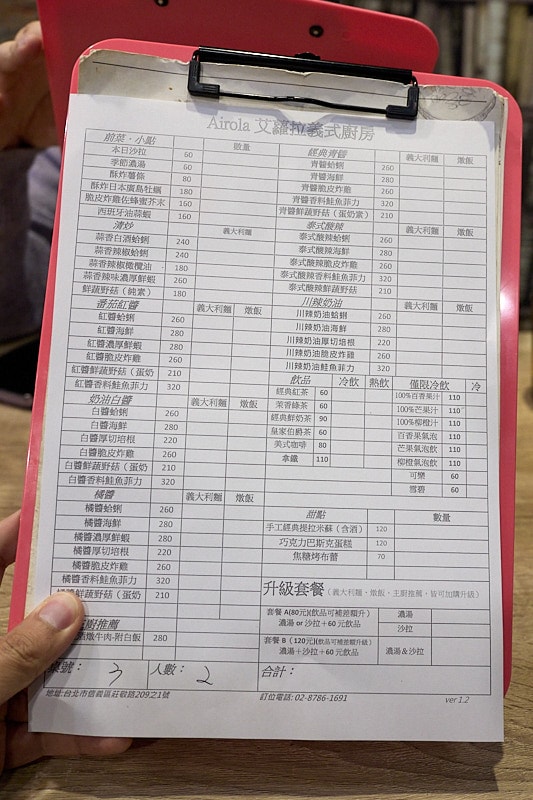 Airola 艾蘿拉義式廚房
前菜．小點 數量
本日沙拉 60
季節濃湯 60
酥炸薯條 80
酥炸日本廣島牡蠣 180
脆皮炸雞佐蜂蜜芥末 160
西班牙油蒜蝦 160
清炒 義大利麵
蒜香白酒蛤蜊 240
蒜香辣椒蛤蜊 240
蒜香辣椒橄欖油 180
蒜香辣味濃厚鮮蝦 260
鮮蔬野菇（純素） 180
番茄紅醬 義大利麵 燉飯
紅醬蛤蜊 260
紅醬海鮮 280
紅醬濃厚鮮蝦 280
紅醬脆皮炸雞 260
紅醬鮮蔬野菇（蛋奶 210
紅醬香料鮭魚菲力 320
奶油白醬 義大利麵 燉飯
白醬蛤蜊 260
白醬海鮮 280
白醬厚切培根 220
白醬脆皮炸雞 260
白醬鮮蔬野菇（蛋奶 210
白醬香料鮭魚菲力 320
橘醬 義大利麵 燉飯
橘醬蛤蜊 260
橘醬海鮮 280
橘醬濃厚鮮蝦 280
橘醬厚切培根 220
橘醬脆皮炸雞 260
橘醬香料鮭魚菲力 320
醬鮮蔬野菇（蛋奶 210
廚推薦
燉牛肉-附白飯 280
經典青醬 義大利麵 燉飯
青醬蛤蜊 260
青醬海鮮 280
青醬脆皮炸雞 260
青醬香料鮭魚菲力 320
青醬鮮蔬野菇（蛋奶素） 210
泰式酸辣 義大利麵 燉飯
泰式酸辣蛤蜊 260
泰式酸辣海鮮 280
泰式酸辣脆皮炸雞 260
泰式酸辣香料鮭魚菲力 320
泰式酸辣鮮蔬野菇 210
川辣奶油 義大利麵 燉飯
川辣奶油蛤蜊 260
川辣奶油海鮮 280
川辣奶油厚切培根 220
川辣奶油脆皮炸雞 260
川辣奶油鮭魚菲力 320
飲品 冷飲 熱飲 僅限冷飲 冷
經典紅茶 60 100%百香果汁 110
茉香綠茶 60 100%芒果汁 110
經典鮮奶茶 90 100%柳橙汁 110
皇家伯爵茶 60 百香果氣泡 110
美式咖啡 80 芒果氣泡飲 110
拿鐵 110 柳橙氣泡飲 110
可樂 60
雪碧 60
甜點 數量
手工經典提拉米蘇（含酒） 120
巧克力巴斯克蛋糕 120
焦糖烤布蕾 70
升級套餐（義大利麵、燉飯，主廚推薦，皆可加購升級）
套餐 A(80元)(飲品可補差額升) 濃湯
濃湯 or 沙拉＋60 元飲品 沙拉
套餐 B（120元)(飲品可補差額升級)
濃湯＋沙拉＋60 元飲品 濃湯＆沙拉
桌號： 3 人數： 2 合計：
地址:台北市信義區莊敬路209之1號 訂位電話: 02-8786-1691 ver 1.2